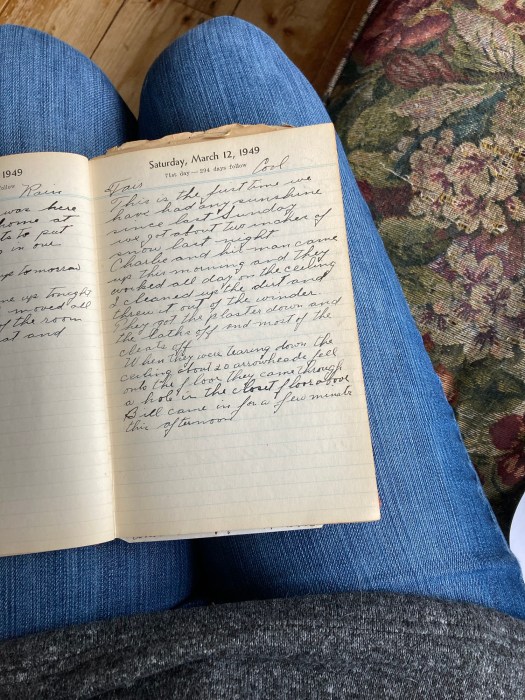 1949
follow
Rain
was here
ome at
ts to put
s in one
up tomorrow
me up tonight
moved all
f the room
at and
Saturday, March 12, 1949
71st day—294 days follow
Fair Cool
This is the first time we
have had any sunshine
since last Sunday
we got about two inches of
snow last night
Charlie and his man came
up this morning and they
worked all day on the ceiling
I cleaned up the dirt and
threw it out of the winder
They got the plaster down and
the laths off and most of the
cleats off
When they were tearing down the
ceiling about 20 arrowheads fell
onto the floor they came through
a hole in the closet floor above
Bill came in for a few minuts
this afternoon